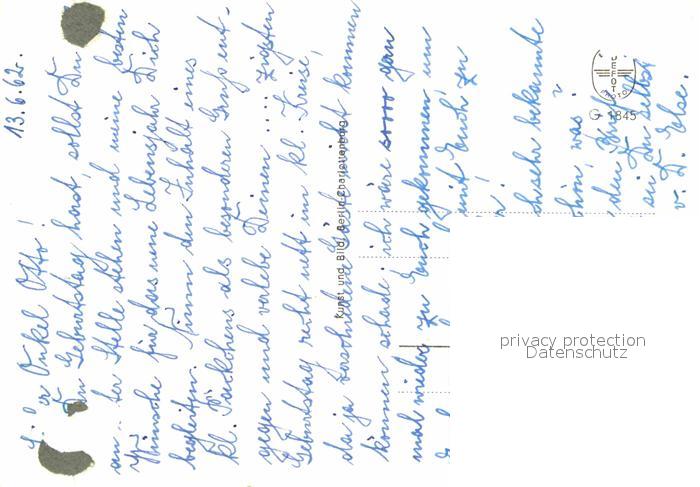 13.6.62.
Onkel Otto!
Du Geburtstag hast, sollst Du
an der Stelle stehen und meine besten
Wünsche für das neue Lebensjahr Dich
begleiten. Nimm den Inhalt eines
kl. Päckchens als besonderen Gruß ent-
gegen und verlebe Deinen .... zigsten
Geburtstag recht nett im kl. Kreise,
da ja Gäste nicht kommen
können, schade, ich wäre soooo gern
mal wieder zu Euch gekommen um
mit Euch zu
sehr bekannte
was
den
Du selbst
v. D. Else.
Kunst und Bild, Berlin-Charlottenburg
FOTO
G 1845
privacy protection
Datenschutz